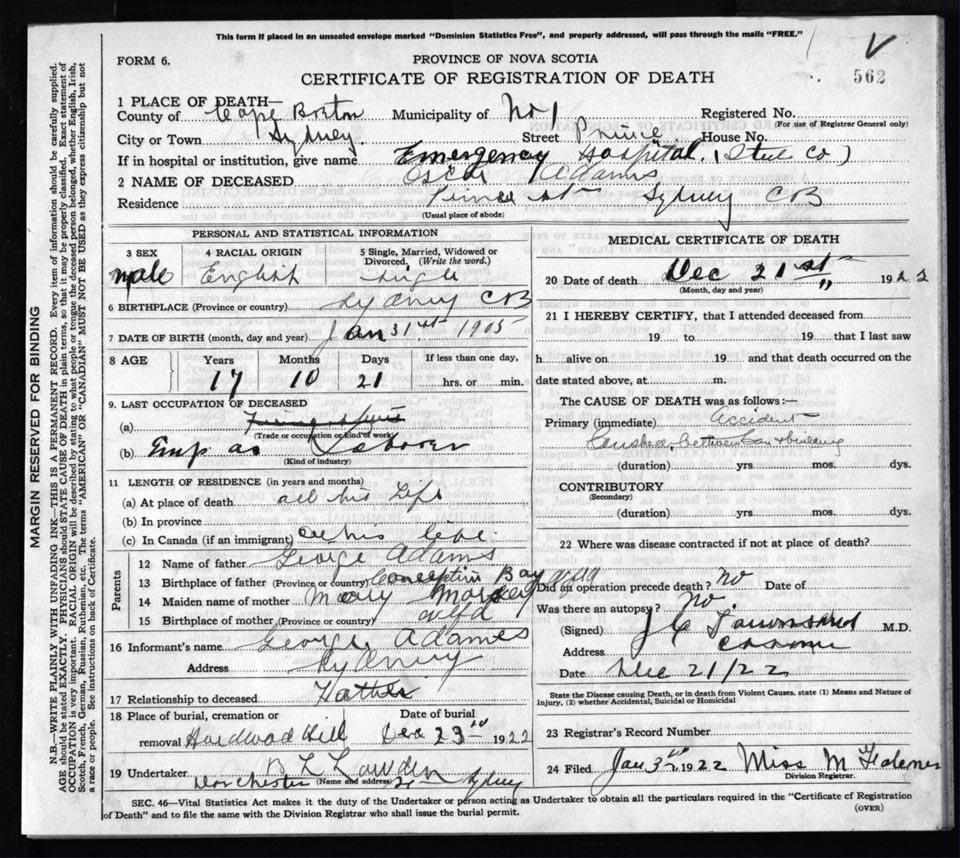 This form if placed in an unsealed envelope marked "Dominion Statistics Free", and properly addressed, will pass through the mails "FREE."
FORM 6.
PROVINCE OF NOVA SCOTIA
562
CERTIFICATE OF REGISTRATION OF DEATH
1 PLACE OF DEATH—
County of Cape Breton Municipality of No 1 Registered No.
(For use of Registrar General only)
City or Town Sydney Street Prince House No.
If in hospital or institution, give name Emergency Hospital. (Steel Co)
2 NAME OF DECEASED Oscar Adams
Residence Prince St Sydney CB
(Usual place of abode)
PERSONAL AND STATISTICAL INFORMATION
3 SEX 4 RACIAL ORIGIN 5 Single, Married, Widowed or Divorced. (Write the word.)
male English Single
6 BIRTHPLACE (Province or country) Sydney CB
7 DATE OF BIRTH (month, day and year) Jan 31st 1905
8 AGE Years Months Days If less than one day,
17 10 21 hrs. or min.
9. LAST OCCUPATION OF DECEASED
(a)
(Trade or occupation or kind of work)
(b) Emp. as Laborer
(Kind of industry)
11 LENGTH OF RESIDENCE (in years and months)
(a) At place of death all his Life
(b) In province
(c) In Canada (if an immigrant) all his life.
Parents
12 Name of father George Adams
13 Birthplace of father (Province or country) Conception Bay Nfld
14 Maiden name of mother Mary
15 Birthplace of mother (Province or country) Nfld
16 Informant's name George Adames
Address Sydney
17 Relationship to deceased Father
18 Place of burial, cremation or removal Hardwood Hill Date of burial Dec 23rd 1922
19 Undertaker
(Name and address)
Dorchester St Sydney
MEDICAL CERTIFICATE OF DEATH
20 Date of death Dec 21st 1922
(Month, day and year)
21 I HEREBY CERTIFY, that I attended deceased from
19 to 19 that I last saw
h alive on 19 and that death occurred on the
date stated above, at m.
The CAUSE OF DEATH was as follows:—
Primary (immediate) Accident
Crushed between Car & building
(duration) yrs. mos. dys.
CONTRIBUTORY
(Secondary)
(duration) yrs. mos. dys.
22 Where was disease contracted if not at place of death?
Did an operation precede death? No Date of
Was there an autopsy? No.
(Signed) M.D.
Address
Date Dec 21/22
State the Disease causing Death, or in death from Violent Causes, state (1) Means and Nature of Injury, (2) whether Accidental, Suicidal or Homicidal
23 Registrar's Record Number
24 Filed Jan 3rd 1922 Miss M
Division Registrar.
SEC. 46—Vital Statistics Act makes it the duty of the Undertaker or person acting as Undertaker to obtain all the particulars required in the "Certificate of Registration
of Death" and to file the same with the Division Registrar who shall issue the burial permit.
(OVER)
MARGIN RESERVED FOR BINDING
N.B.—WRITE PLAINLY WITH UNFADING INK—THIS IS A PERMANENT RECORD. Every item of information should be carefully supplied.
AGE should be stated EXACTLY. PHYSICIANS should STATE CAUSE OF DEATH in plain terms, so that it may be properly classified. Exact statement of
OCCUPATION is very important. RACIAL ORIGIN will be described by stating to what people or tongue the deceased person belonged, whether English, Irish,
Scotch, French, German, Russian, Ruthenian, etc. The terms "AMERICAN" OR "CANADIAN" MUST NOT BE USED as they express citizenship but not
a race or people. See instructions on back of Certificate.